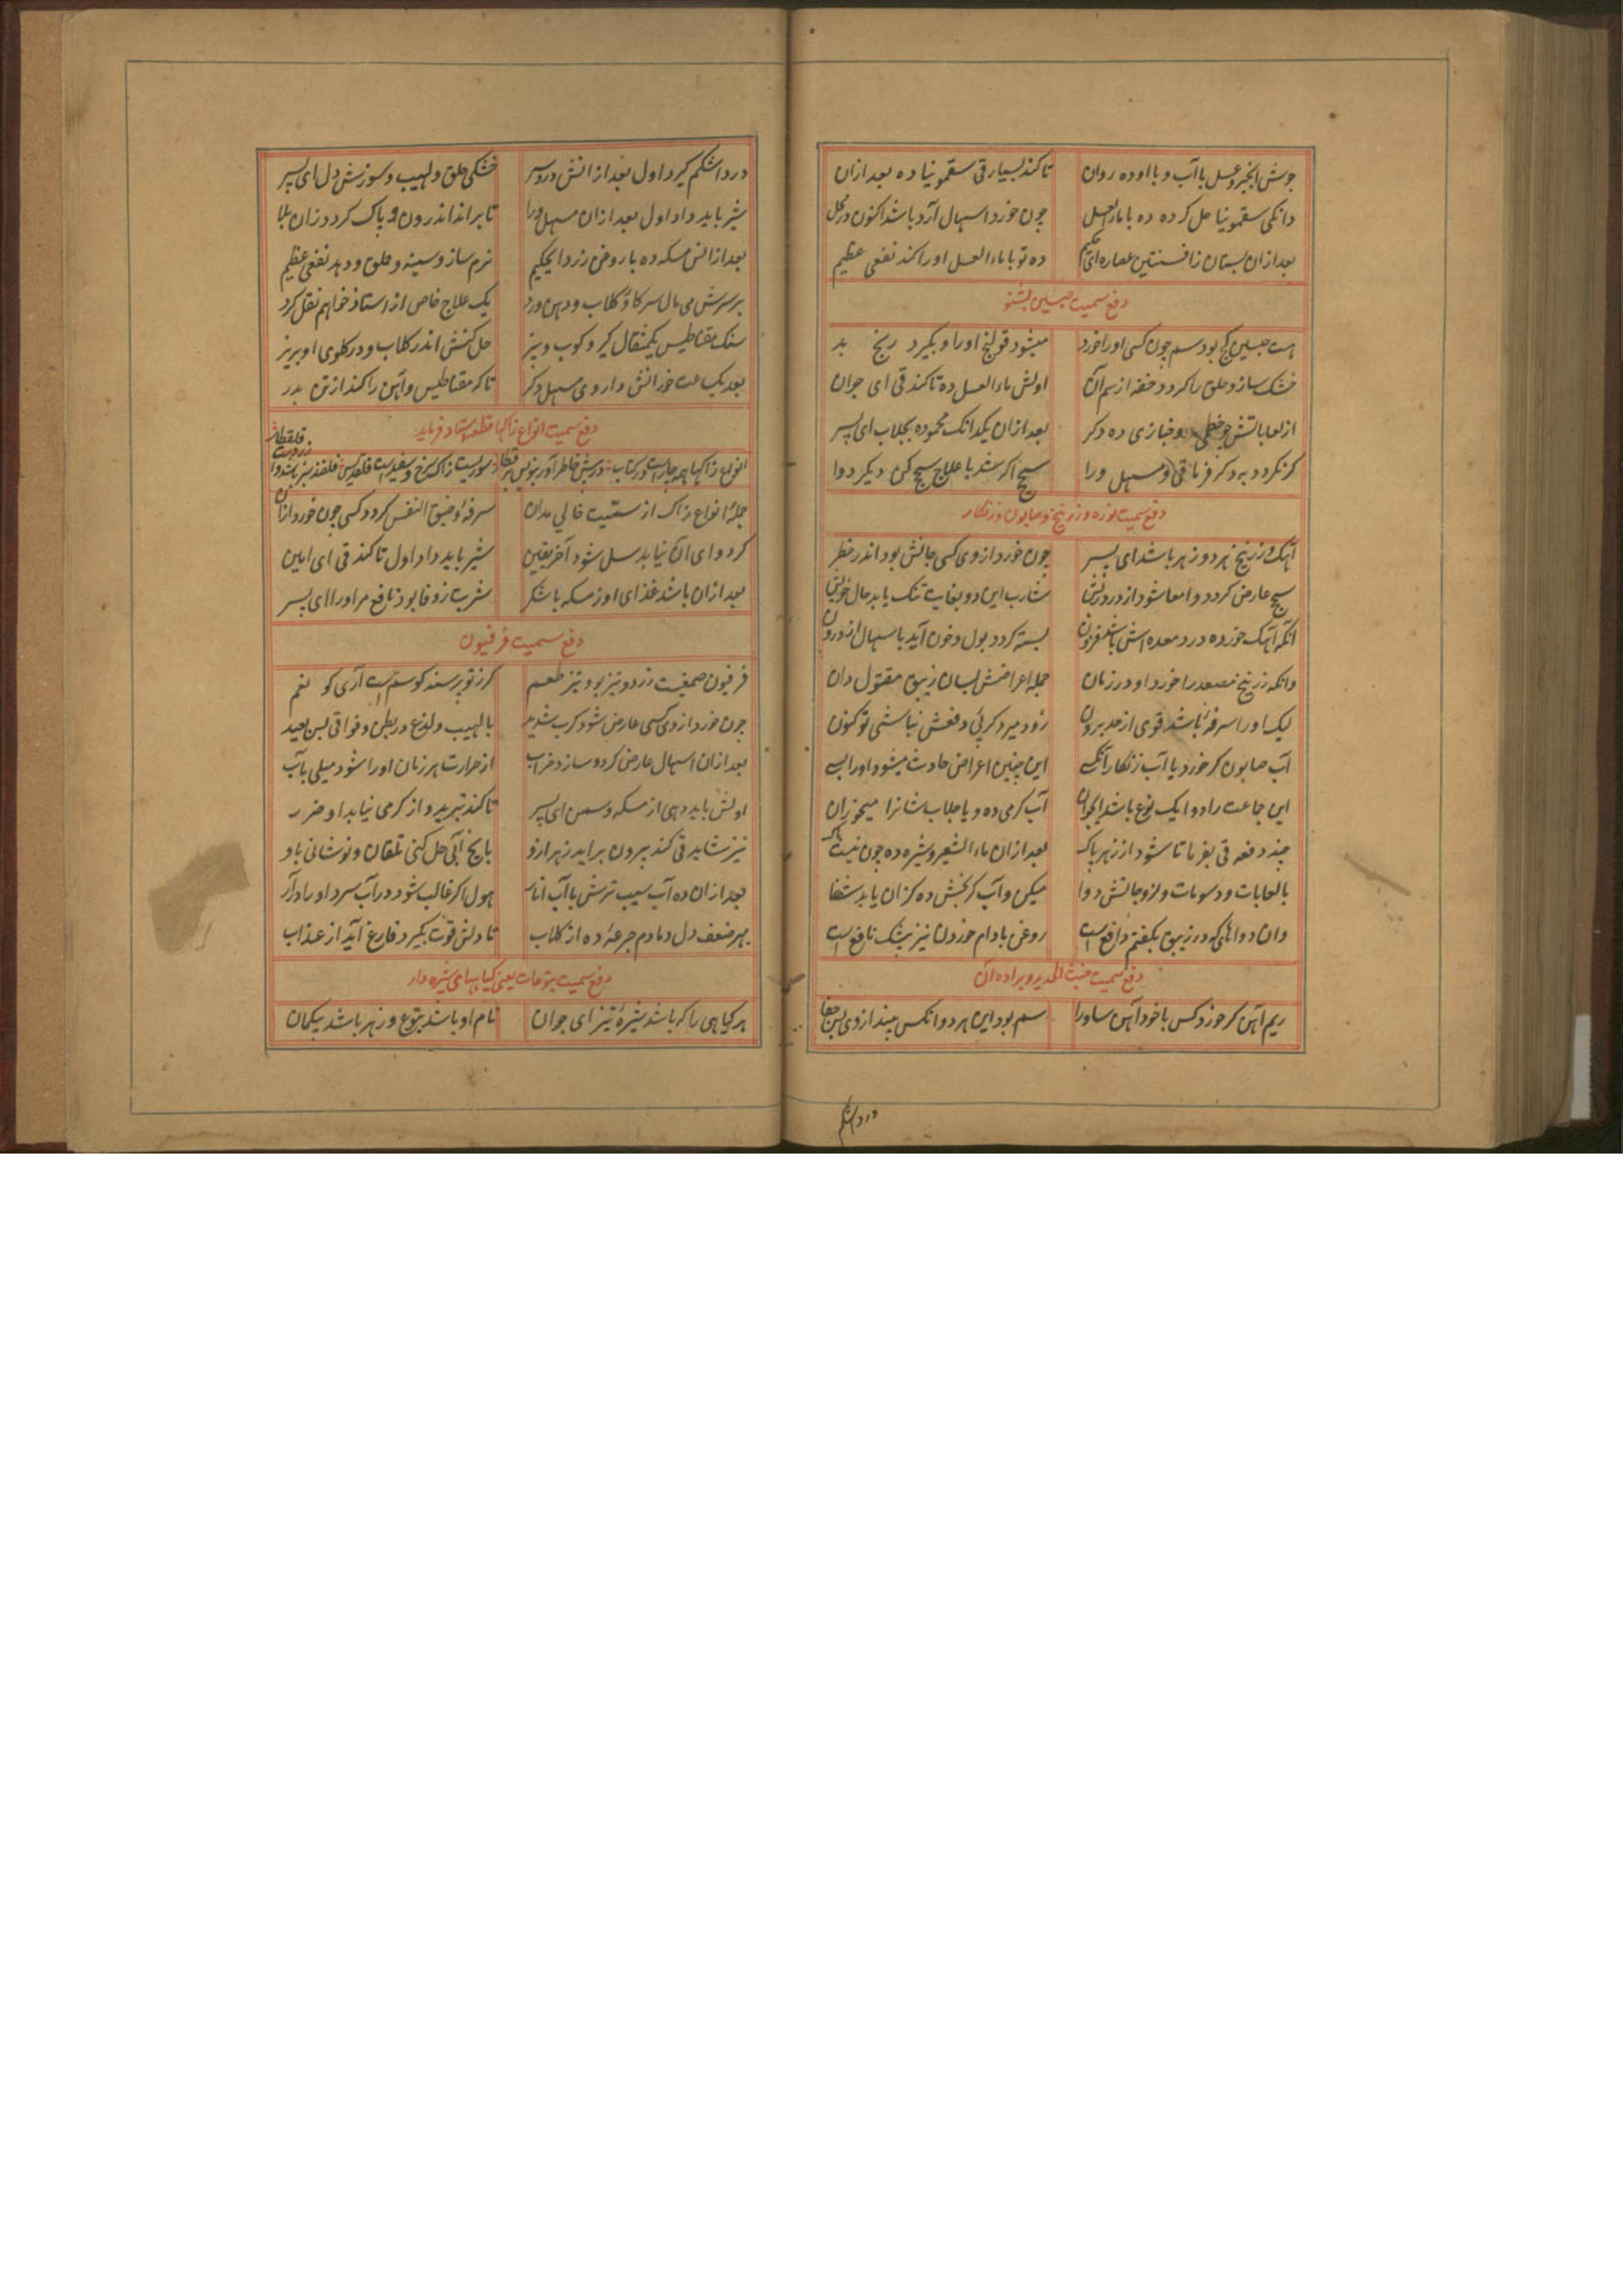 جوش انجیر و عسل با آب و با او ده روان تا کند بسیار قی سقمونیا ده بعد ازان
دانکی سقمونیا حل کرده ده با ماءالعسل چون خورد اسهال آرد باشد اکنون در محل
بعد ازان بستان ز افسنتین عصاره ای حکیم ده تو با ماء العسل او را کند نفعی عظیم
دفع سمیت جبسین بشنو
هست جبسین کج بود سم چون کسی او را خورد میشود قولنج او را و بگیرد رنج بد
خشک سازد حلق را گردد خفه از سم آن اولش ماء العسل ده تا کند قی ای جوان
از لعاباتش چو خطمی و خبازی ده دکر بعد ازان یکدانک محموده بجلاب ای پسر
کر نکردد به دکر فرما قی و مسهل ورا سحج اکر شد با علاج سحج کن دیکر دوا
دفع سمیت نوره و زرنیخ و صابون و زنکار
آهک و زرنیخ هر دو زهر باشد ای پسر چون خورد از وی کسی جانش بود اندر خطر
سحج عارض کردد و امعا شود از درد ریش شارب این دو بغایت تنک یابد حال خویش
آنکه آهک خورده درد معده اش باشد فزون بسته کردد بول و خون آید باسهال از درون
وانکه زرنیخ مصعد را خورد او در زمان جمله اعراضش بسان زیبق مقتول دان
لیک او را سرفهٔ باشد قوی از حد برون زود میرد کر پئی دفعش نباشی تو کنون
آب صابون کر خورد یا آب زنکار آن کسی این چنین اعراض حادث میشود او را بسی
این جماعت را دوا یک نوع باشد ای جوان آب کرمی ده و یا جلاب شانرا میخوران
چند دفعه قی بفرما تا شود از زهر پاک بعد ازان ماء الشعیر و شیره ده چون نیست باک
با لعابات و دسومات و لزوجاتش دوا میکن و آب کرفش ده کزان یابد شفا
وان دواهائی که در زیبق بکفتم دافع است روغن بادام خوردن نیز بیشک نافع است
دفع سمیت خبث الحدید و براده آن
ریم آهن کر خورد کس یا خود آهن ساو را سم بود این هر دو آنکس بیند از وی بس جفا
درد اشکم
درد اشکم کیرد اول بعد از آنش درد سر خشکی حلق و لهیب و سوزش دل ای پسر
شیر باید داد اول بعد ازان مسهل ورا تا براند اندرون و پاک کردد زان بلا
بعد از آنش مسکه ده با روغن زرد ای حکیم نرم سازد سینه و حلق و دهد نفعی عظیم
بر سرش می مال سرکا و کلاب و دهن ورد یک علاج خاص از استاد خواهم نقل کرد
سنک مقناطیس یکمثقال کیر و کوب و بیز حل کنش اندر کلاب و در کلوی او بریز
بعد یک ساعت خورانش داروی مسهل دکر تا که مقناطیس و آهن را کند از تن بدر
دفع سمیت انواع زاکها قطعه استاد فرماید
جملهٔ انواع زاک از سمّیت خالی مدان سرفهٔ و ضیق النفس کردد کسی چون خورد ازان
کر دوای آن نیابد سل شود آخر یقین شیر باید داد اول تا کند قی ای امین
بعد ازان باشد غذای او ز مسکه با شکر شربت زوفا بود نافع مر او را ای پسر
دفع سمیت فرفیون
فرفیون صمغیست زرد و تیز بو و تیز طعم کر ز تو پرسند کو سمست آری کو نعم
چون خورد از وی کسی عارض شود کرب شدید با لهیب و لذع در بطن و فواقی بس بعید
بعد ازان اسهال عارض کردد و سازد خراب از حرارت هر زمان او را شود میلی بآب
اولش باید دهی از مسکه و سمن ای پسر تا کند تبرید و از کرمی نیابد او ضرر
نیز شاید قی کند بیرون براید زهر ازو با یخ آبی حل کنی تلقان و نوشانی باو
بعد ازان ده آب سیب ترش با آب انار هول اکر غالب شود در آب سرد او را در آر
بهر ضعف دل دمادم جرعهٔ ده از کلاب تا دلش قوت بکیرد فارغ آید از عذاب
دفع سمیت یتوعات یعنی کیاههای شیره دار
هر کیاهی را که باشد شیرهٔ تیز ای جوان نام او باشد یتوع و زهر باشد بیکمان